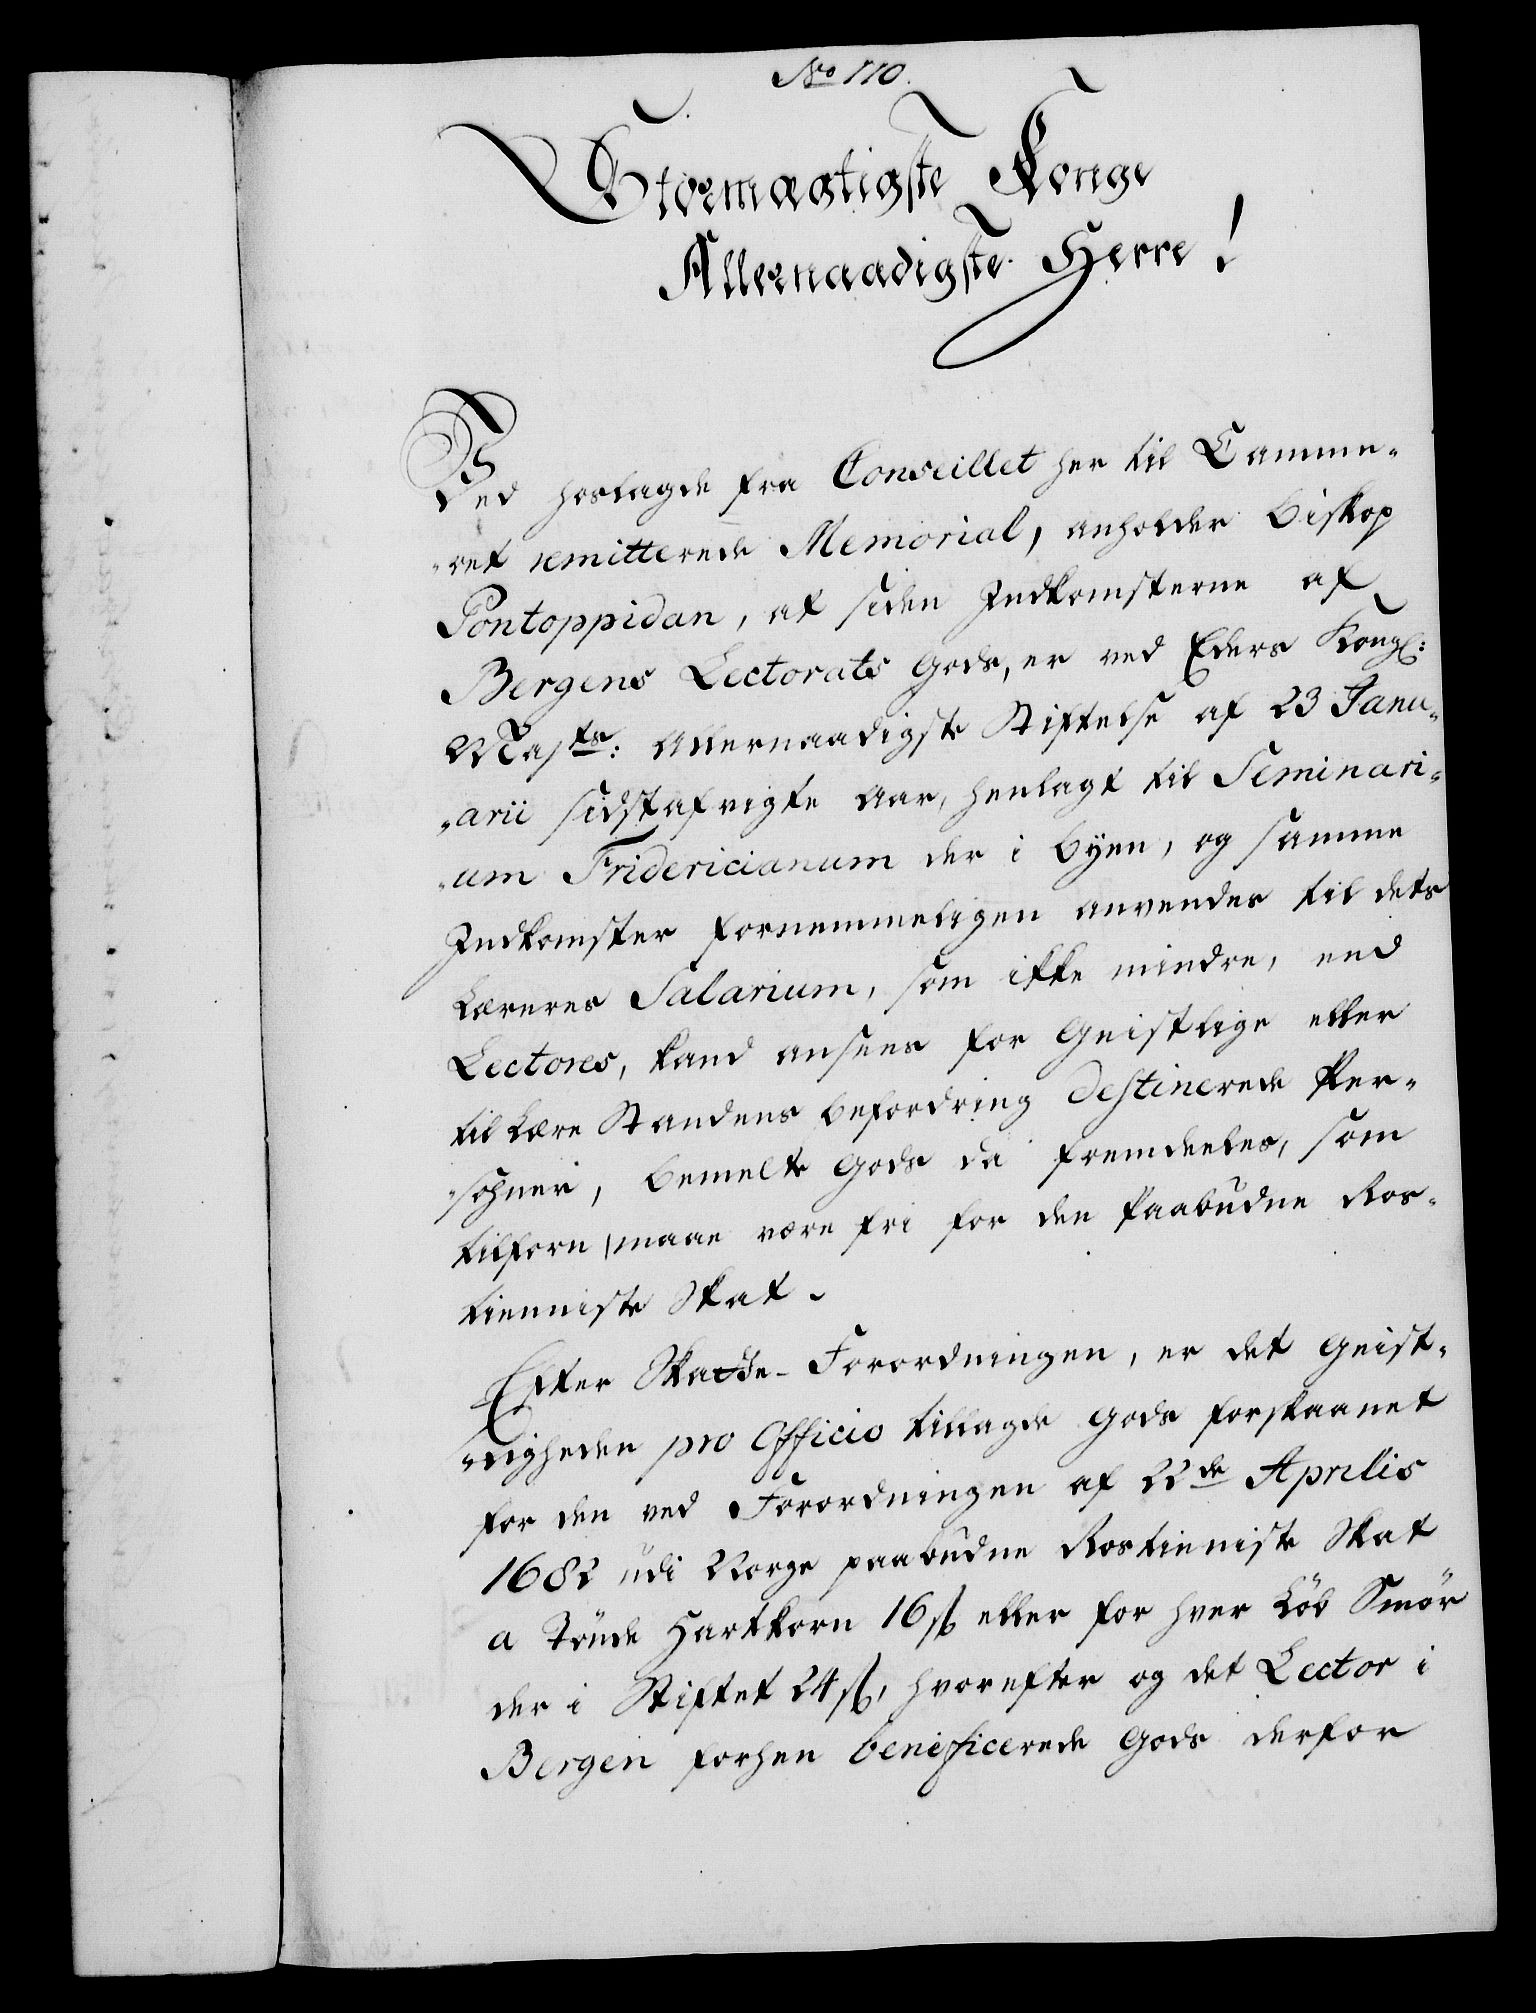 No 110.
Stormægtigste Konge
Allernaadigste Herre!
Ved hoslagde fra Conseillet her til Camme-
-ret remitterede Memorial, anholder Biskop
Pontoppidan, at siden Indkomsterne af
Bergens Lectorats Gods, er ved Eders Kongl:
Majts: Allernaadigste Stiftelse af 23 Janu-
-arii sidstafvigte Aar, henlagt til Seminari-
-um Fridericianum der i Byen, og samme
Indkomster fornemmeligen anvendes til dets
Læreres Salarium, som ikke mindre, end
Lectores, kand ansees for Geistlige eller
til Lære Standens befordring destinerede Per-
-sohner, bemelte Gods da fremdeeles, som
tilforn maae være fri for den Paabudne Ros-
tienniste Skat.
Efter Skatte-Forordningen, er det Geist-
-ligheden pro Officio tillagde Gods forskaanet
for den ved Forordningen af 22de Aprilis
1682 udi Norge paabudne Rostieniste Skat
a Tønde Hartkorn 16 ß eller for hver Løb Smør
der i Stiftet 24 ß, hvorefter og det Lector i
Bergen forhen beneficerede Gods derfor